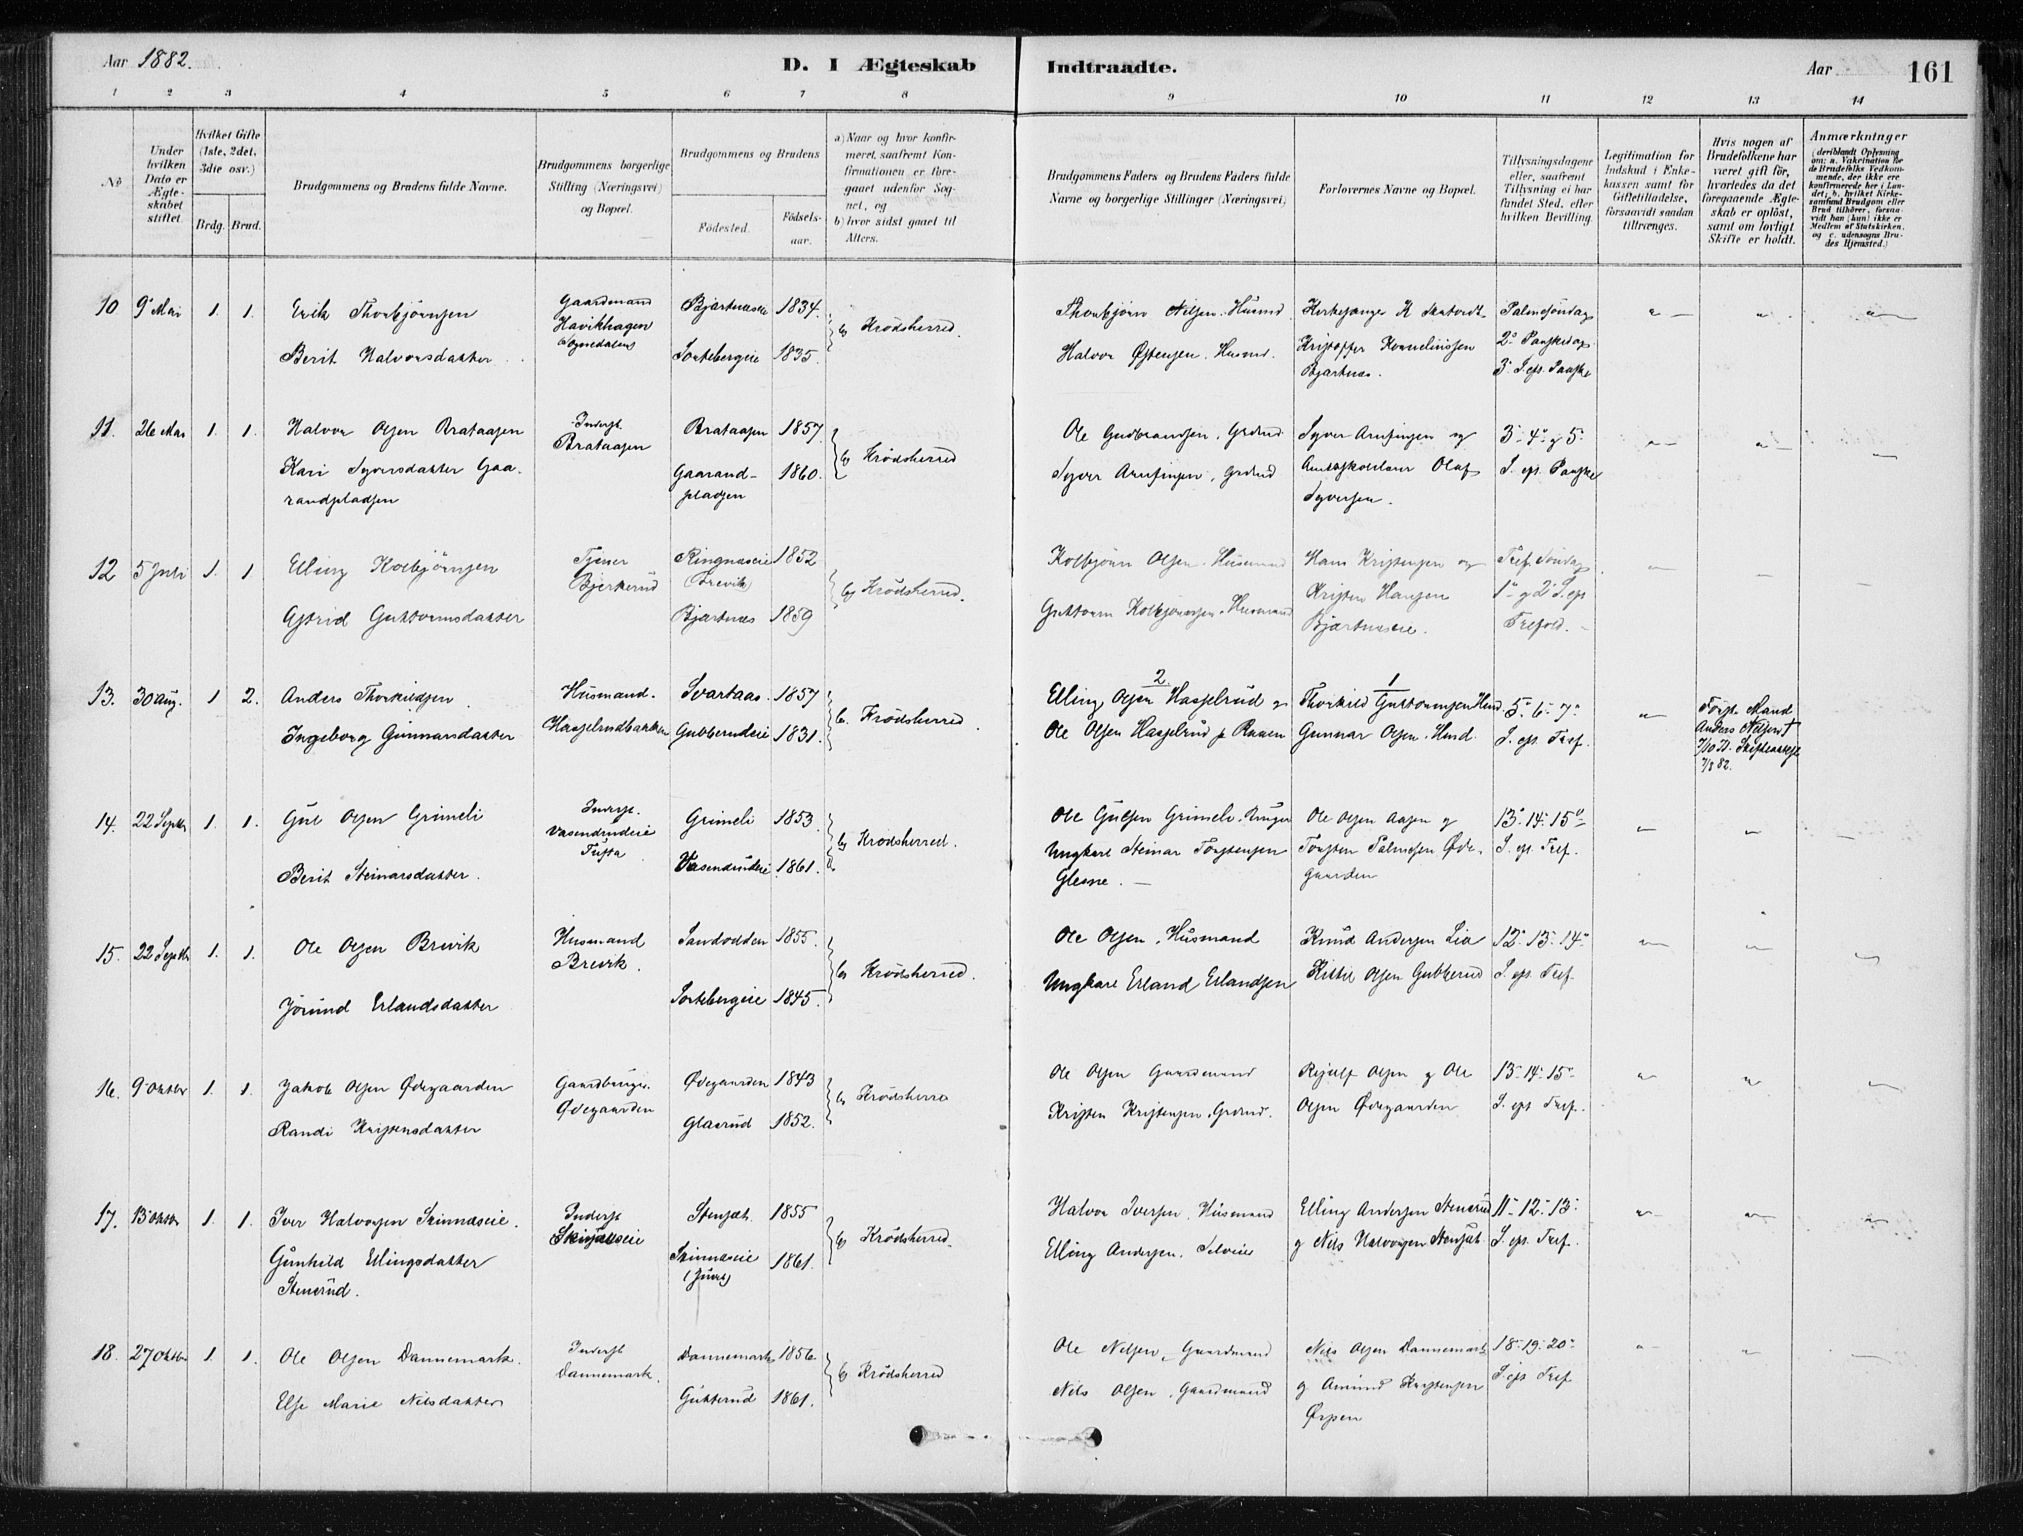 Aar 1882.
D. I Ægteskab Indtraadte.
Aar 161
1 2 3 4 5 6 7 8 9 10 11 12 13 14
No
Under hvilken Dato er Ægteskabet stiftet.
Hvilket Gifte (1ste, 2det, 3die osv.)
Brdg. Brud.
Brudgommens og Brudens fulde Navne.
Brudgommens borgerlige Stilling (Næringsvei) og Bopæl.
Brudgommens og Brudens
Fødested. Fødsels-aar.
a) Naar og hvor konfirmeret, saafremt Konfirmationen er foregaaet udenfor Sognet, og
b) hvor sidst gaaet til Alters.
Brudgommens Faders og Brudens Faders fulde Navne og borgerlige Stillinger (Næringsvei)
Forlovernes Navne og Bopæl.
Tillysningsdagene eller, saafremt Tillysning ei har fundet Sted, efter hvilken Bevilling.
Legitimation for Indskud i Enkekassen samt for Giftetilladelse, forsaavidt saadan tiltrænges.
Hvis nogen af Brudefolkene har været gift før, hvorledes da det foregaaende Ægteskab er opløst, samt om lovligt Skifte er holdt.
Anmærkninger
(deriblandt Oplysning om: a. Vakcination for de Brudefolks Vedkommende, der ikke ere konfirmerede her i Landet; b. hvilket Kirkesamfund Brudgom eller Brud tilhører, forsaavidt han (hun) ikke er Medlem af Statskirken, og c. udensogns Brudes Hjemsted.)
10 9 Mai 1. 1. Erik Thorbjørnsen Gaardmand Havikhagen Sognedalen Bjørtnæseie 1834. b) Krødsherred. Thorbjørn Nilsen. Husmd Kirkesanger K Skatvedt Palmesøndag
Berit Halvorsdatter Sortebergeie 1835. Halvor Østensen. Husmd. Kristoffer Kornelinssen Bjørtnæs. 2 Paaskedag 3 S. eft. Paaske
11. 26 Mai 1. 1. Halvor Olsen Brataasen Inderst Brataasen Brataasen 1857. b) Krødsherred Ole Gudbrandsen, Grdmd Syver Arnfinsen og 3 - 4 og 5
Kari Syversdatter Gaarandpladsen Gaarandpladsen 1860. Syver Arnfinsen, Grdmd Amtsskolelærer Olaf Syversen. S. eft. Paaske
12 5 Juli 1. 1 Elling Kolbjørnsen Tjener Bjerkerud Ringnæseie (Brevik) 1852 b) Krødsherred. Kolbjørn Olsen. Husmand Hans Kristensen og Tref. Søndag
Astrid Guttormsdatter Bjørtnæs 1859 Guttorm Kolbjørnsen. Husmand Kristen Hansen Bjørtnæseie. 1 og 2 S. eft Trefold.
13. 30 Aug. 1 2. Anders Thorkildsen Husmand. Svartaas. 1857 b. Krødsherred 2. Elling Olsen Hasselrud og 1 Thorkild Guttormsen Husd. 5 - 6 - 7 Først Mand Anders Nilsen †
Ingeborg Gunnarsdatter Hasselrudbakken Gubberudeie 1831. Ole Olsen Hasselrud Gunnar Olsen. Husd. S. eft. Tref. Skifteattest 82.
14. 22 Septbr 1. 1. Gul Olsen Grimeli Inderst. Vasendrudeie Tufta Grimeli 1853. b) Krødsherred. Ole Gulsen Grimeli. Ole Olsen Aasen og 13 - 14 - 15
Berit Steinarsdatter. Vasendrudeie 1861. Ungkarl Steinar Torstensen Glesne. Torsten Palmesen Ødegaarden S. eft. Tref.
15. 22 Septbr 1. 1. Ole Olsen Brevik Husmand Brevik. Sandodden 1855. b) Krødsherred. Ole Olsen, Husmand Knud Andersen Lia 12 - 13 - 14
Jørund Erlandsdatter Sortebergeie 1845. Ungkarl Erland Erlandsen Kittil Olsen Gubberud S. eft. Tref.
16. 9 Oktbr 1. 1. Jakob Olsen Ødegaarden Gaardbruger. Ødegaarden Ødegaarden 1843 b) Krødsherred Ole Olsen Gaardmand Olsen og Ole 13 - 14 - 15
Randi Kristensdatter Glasrud 1852. Kristen Kristensen, Grdmd. Olsen Ødegaarden S. eft Tref.
17. 13 Oktbr 1. 1. Iver Halvorsen Skinnæseie. Inderst Skinnæseie Stensæt. 1855 b) Krødsherred. Halvor Iversen, Husmand Elling Andersen Stenerud 11 - 12 - 13
Gunhild Ellingsdatter Stenerud. Skinnæseie 1861. Elling Andersen. Selveier og Nils Halvorsen Stensæt S. eft. Tref.
18. 27 Oktbr 1. 1. Ole Olsen Dannemark. Inderst Dannemark. Dannemark 1856. b) Krødsherred Ole Nilsen, Gaardmand Nils Olsen Dannemark 18 - 19 - 20
Else Marie Nilsdatter Gubberud 1861. Nils Olsen, Gaardmand og Amund Kristensen Ørpen S. eft Tref